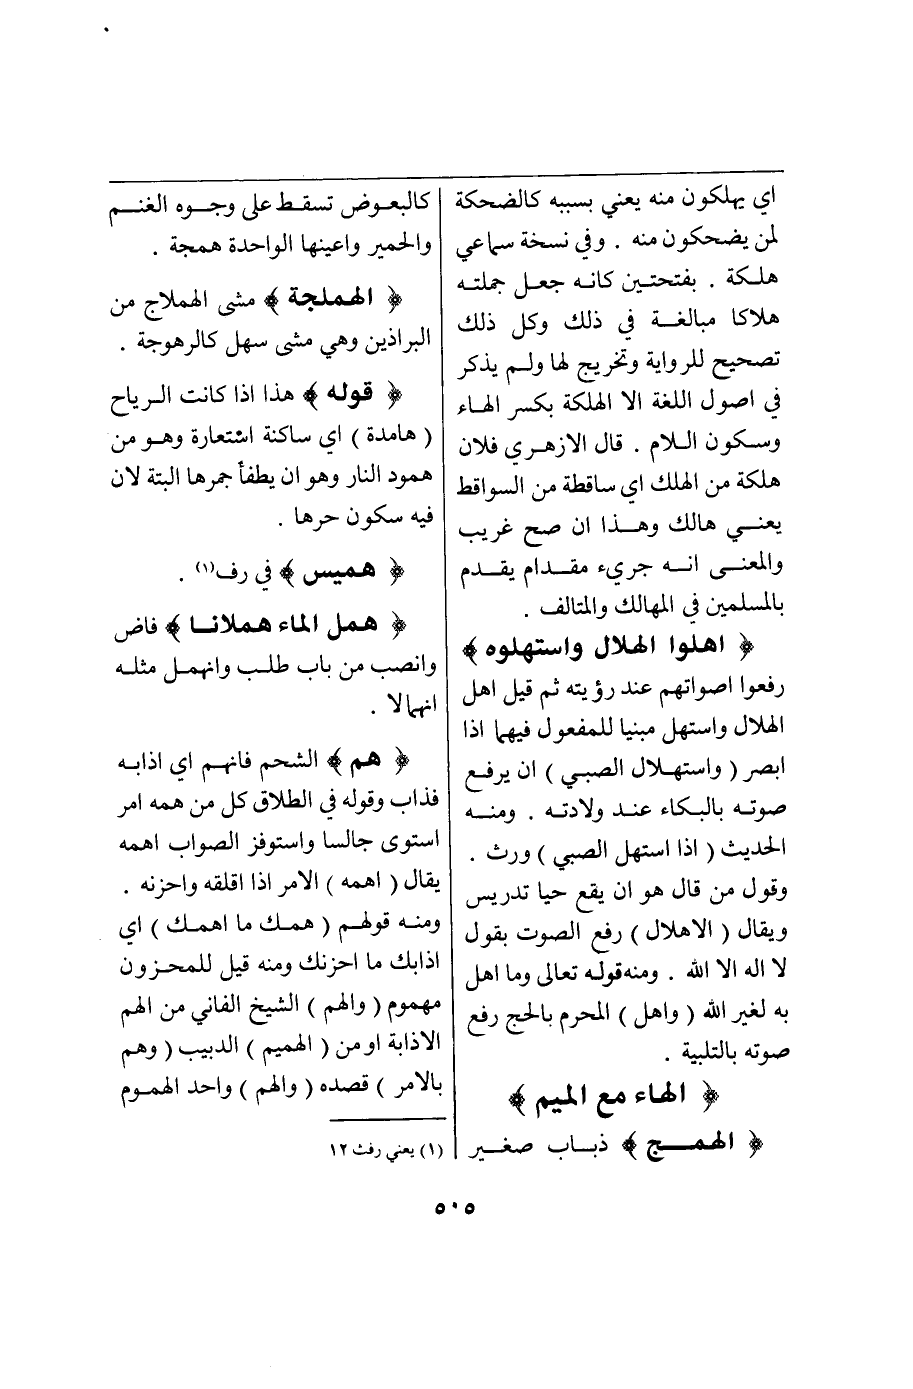 اي يهلكون منه يعني بسببه كالضحكة
لمن يضحكون منه . وفي نسخة سماعي
هلكة . بفتحتين كانه جعل جملته
هلاكا مبالغة في ذلك وكل ذلك
تصحيح للرواية وتخريج لها ولم يذكر
في اصول اللغة الا الهلكة بكسر الهاء
وسكون اللام . قال الازهري فلان
هلكة من الهلك اي ساقطة من السواقط
يعني هالك وهذا ان صح غريب
والمعنى انه جريء مقدام يقدم
بالمسلمين في المهالك والمتالف .
﴿ اهلوا الهلال واستهلوه ﴾
رفعوا اصواتهم عند رؤيته ثم قيل اهل
الهلال واستهل مبنيا للمفعول فيهما اذا
ابصر ( واستهلال الصبي ) ان يرفع
صوته بالبكاء عند ولادته . ومنه
الحديث ( اذا استهل الصبي ) ورث .
وقول من قال هو ان يقع حيا تدريس
ويقال ( الاهلال ) رفع الصوت بقول
لا اله الا الله . ومنه قوله تعالى وما اهل
به لغير الله ( واهل ) المحرم بالحج رفع
صوته بالتلبية .
﴿ الهاء مع الميم ﴾
﴿ الهمج ﴾ ذباب صغير
كالبعوض تسقط على وجوه الغنم
والحمير واعينها الواحدة همجة .
﴿ الهملجة ﴾ مشى الهملاج من
البراذين وهي مشى سهل كالرهوجة .
﴿ قوله ﴾ هذا اذا كانت الرياح
( هامدة ) اي ساكنة استعارة وهو من
همود النار وهو ان يطفأ جمرها البتة لان
فيه سكون حرها .
﴿ هميس ﴾ في رف(١) .
﴿ همل الماء هملانا ﴾ فاض
وانصب من باب طلب وانهمل مثله
انهمالا .
﴿ هم ﴾ الشحم فانهم اي اذابه
فذاب وقوله في الطلاق كل من همه امر
استوى جالسا واستوفز الصواب اهمه
يقال ( اهمه ) الامر اذا اقلقه واحزنه .
ومنه قولهم ( همك ما اهمك ) اي
اذابك ما احزنك ومنه قيل للمحزون
مهموم ( والهم ) الشيخ الفاني من الهم
الاذابة او من ( الهميم ) الدبيب ( وهم
بالامر ) قصده ( والهم ) واحد الهموم
(١) يعني رفث ١٢
٥٠٥